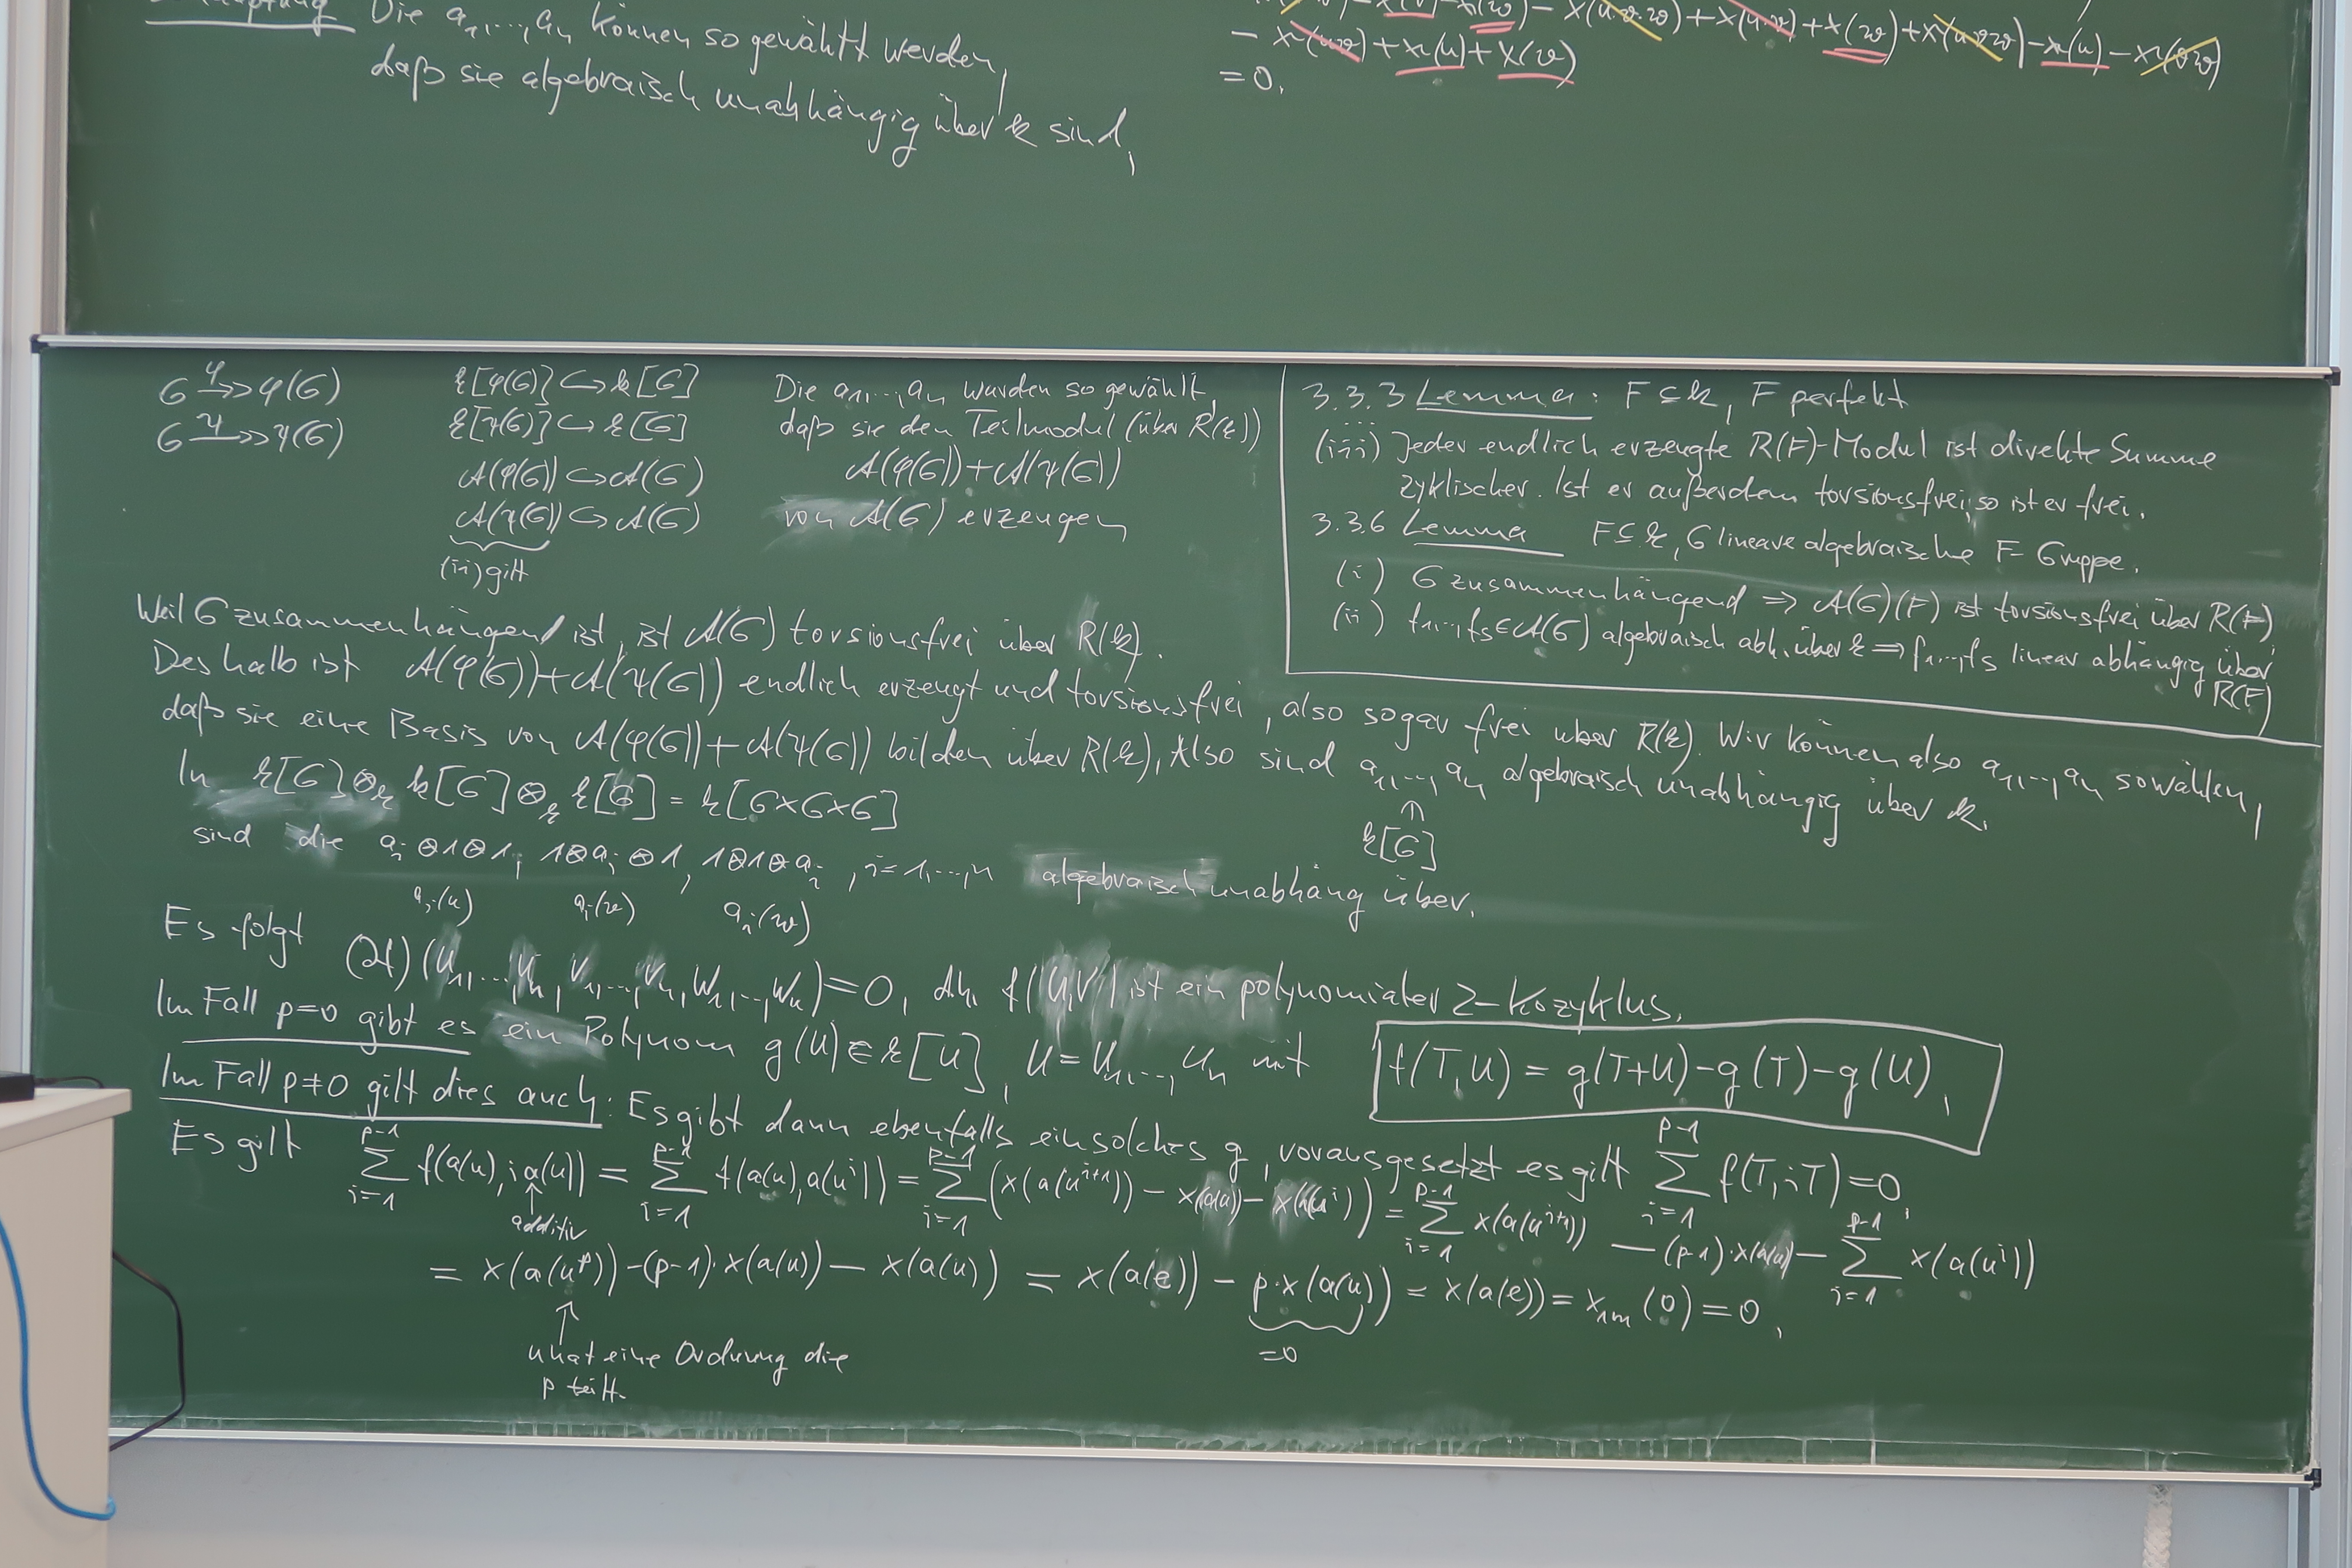 Die a₁,...,aₙ können so gewählt werden,
daß sie algebraisch unabhängig über k sind,
− x(u·v) + x(u) + x(v)
= 0.
G →φ→ φ(G)
G →ψ→ ψ(G)
k[φ(G)] ↪ k[G]
k[ψ(G)] ↪ k[G]
A(φ(G)) ↪ A(G)
A(ψ(G)) ↪ A(G)
(ii) gilt
Die a₁,...,aₙ wurden so gewählt,
daß sie den Teilmodul (über R(k))
A(φ(G)) + A(ψ(G))
von A(G) erzeugen
3.3.3 Lemma: F ⊆ k, F perfekt
...
(iii) Jeder endlich erzeugte R(F)-Modul ist direkte Summe
zyklischer. Ist er außerdem torsionsfrei, so ist er frei.
3.3.6 Lemma F ⊆ k, G lineare algebraische F-Gruppe.
(i) G zusammenhängend ⇒ A(G)(F) ist torsionsfrei über R(F)
(ii) f₁,...,fₛ ∈ A(G) algebraisch abh. über k ⇒ f₁,...,fₛ linear abhängig über
R(F)
Weil G zusammenhängend ist, ist A(G) torsionsfrei über R(k).
Deshalb ist A(φ(G)) + A(ψ(G)) endlich erzeugt und torsionsfrei, also sogar frei über R(k). Wir können also a₁,...,aₙ so wählen,
daß sie eine Basis von A(φ(G)) + A(ψ(G)) bilden über R(k), Also sind a₁,...,aₙ algebraisch unabhängig über k.
⋔
k[G]
In k[G] ⊗ₖ k[G] ⊗ₖ k[G] = k[G×G×G]
sind die aᵢ⊗1⊗1, 1⊗aᵢ⊗1, 1⊗1⊗aᵢ, i=1,...,n algebraisch unabhäng über.
aᵢ(u) aᵢ(v) aᵢ(w)
Es folgt (∂f)(U₁,...,Uₙ,V₁,...,Vₙ,W₁,...,Wₙ) = 0, d.h. f(U,V) ist ein polynomialer 2-Kozyklus.
Im Fall p=0 gibt es ein Polynom g(U) ∈ k[U], U = U₁,...,Uₙ mit
f(T,U) = g(T+U) − g(T) − g(U),
Im Fall p≠0 gilt dies auch: Es gibt dann ebenfalls ein solches g, vorausgesetzt es gilt ∑_{i=1}^{p-1} f(T,iT) = 0,
Es gilt ∑_{i=1}^{p-1} f(a(u), i a(u)) = ∑_{i=1}^{p-1} f(a(u), a(uⁱ)) = ∑_{i=1}^{p-1} (x(a(uⁱ⁺¹)) − x(a(u)) − x(a(uⁱ))) = ∑_{i=1}^{p-1} x(a(uⁱ⁺¹)) − (p−1)·x(a(u)) − ∑_{i=1}^{p-1} x(a(uⁱ))
↑
additiv
= x(a(uᵖ)) − (p−1)·x(a(u)) − x(a(u)) = x(a(e)) − p·x(a(u)) = x(a(e)) = x₁ₘ(0) = 0,
↑
u hat eine Ordnung die
p teilt.
=0